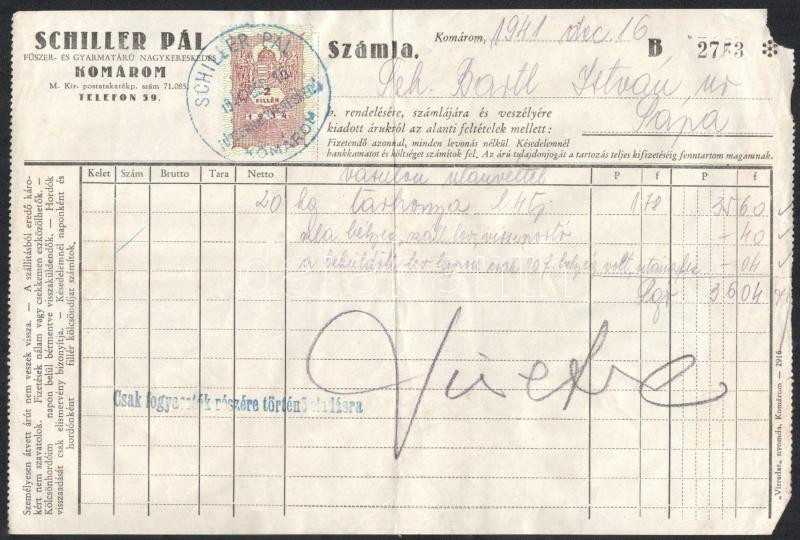 SCHILLER PÁL
FŰSZER- ÉS GYARMATÁRÚ NAGYKERESKEDÉS
KOMÁROM
M. Kir. postatakarékp. szám 71.085.
TELEFON 59.
SCHILLER PÁL
KOMÁROM
2
FILLÉR
Számla.
Komárom, 1941 dec 16
B 2753
Bartl István úr
Pápa
b. rendelésére, számlájára és veszélyére
kiadott árukról az alanti feltételek mellett:
Fizetendő azonnal, minden levonás nélkül Késedelemnél
bankkamatot és költséget számítok fel, Az árú tulajdonjogát a tartozás teljes kifizetéséig fenntartom magamnak.
Kelet Szám Brutto Tara Netto P f P f
vasúton utánvéttel
20 kg tarhonya 1 78 35 60
bélyeg száll lev - 40
a lev lapon csak f bélyeg volt - 04
36 04
Csak fogyasztók részére történő eladásra
Személyesen átvett árút nem veszek vissza. — A szállításból eredő káro-
kért nem szavatolok. Fizetések nálam vagy csekkemen eszközölhetők. —
Kölcsönhordóim napon belül bérmentve visszaküldendők. — Hordók
visszaadását csak elismervény bizonyítja. — Késedelemnél naponként és
hordónként fillér kölcsöndíjat számítok.
„Virradat" nyomda, Komárom — 2916